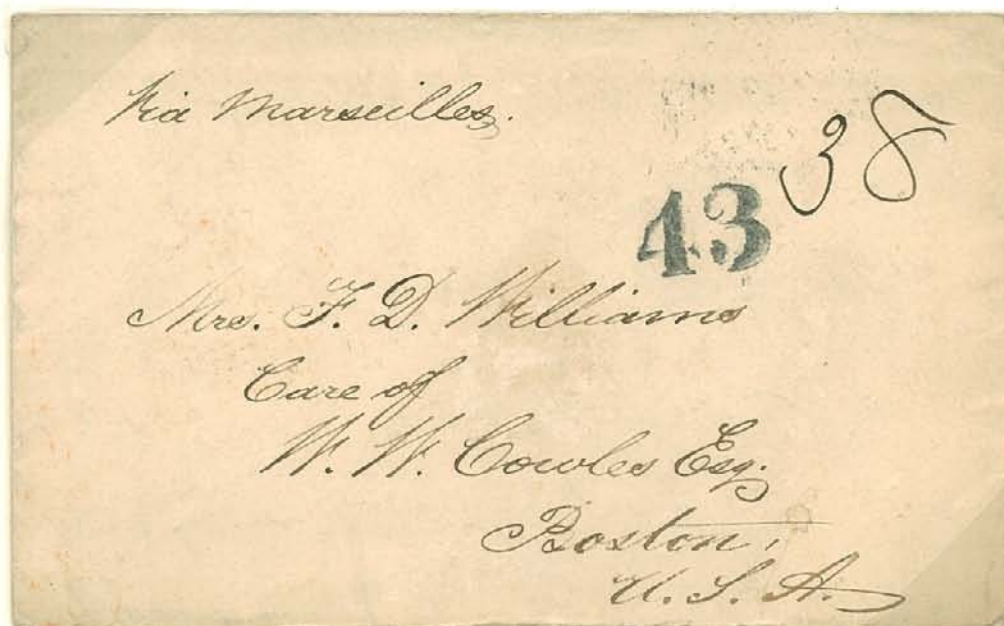 Via Marseilles.
38
43
Mrs. F. D. Williams
Care of
W. W. Cowles Esq.
Boston,
U. S. A.